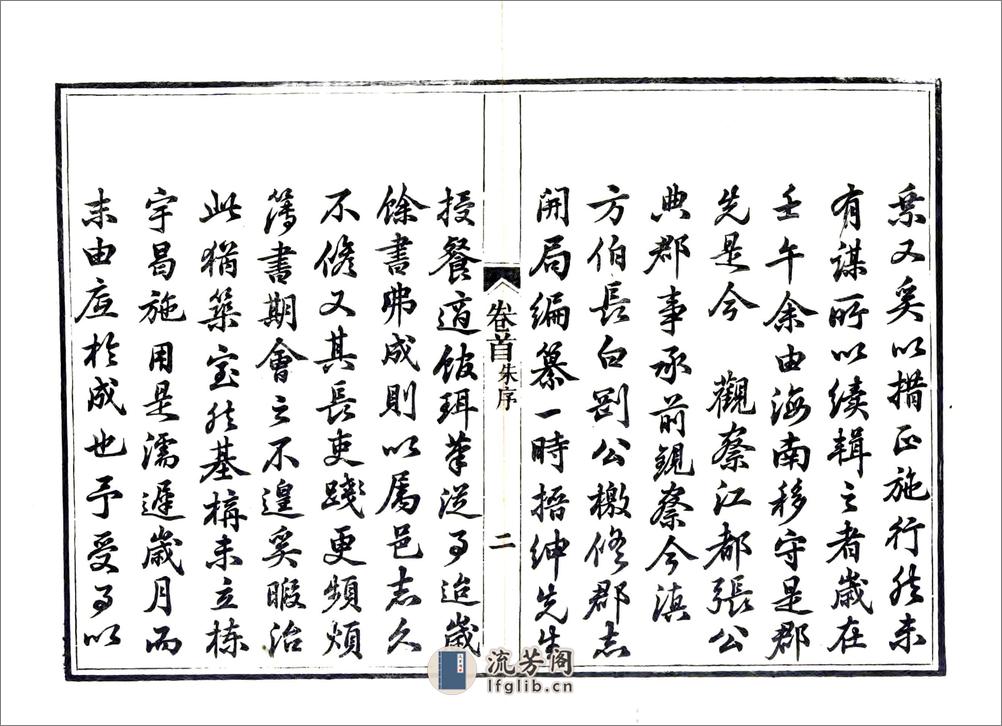 棄又奚以措正施行然未
有謀所以續輯之者歲在
壬午余由海南移守是郡
先是今 觀察江都張公
典郡事承前觀察今滇
方伯長白劉公檄修郡志
開局編纂一時搢紳先生
卷首 朱序 二
授餐適館珥筆從事迨歲
餘書弗成則以屬邑志久
不修又其長吏踐更頻煩
簿書期會之不遑奚暇治
此猶築室然基構未立棟
宇曷施用是濡遲歲月而
未由底於成也予受事以
流芳阁
lfglib.cn